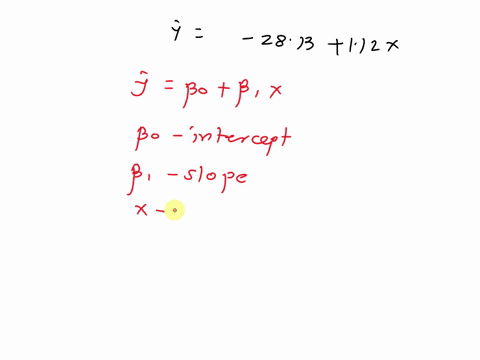 ŷ = -28.13 + 1.12x
ŷ = β0 + β1 x
β0 - intercept
β1 - slope
x -